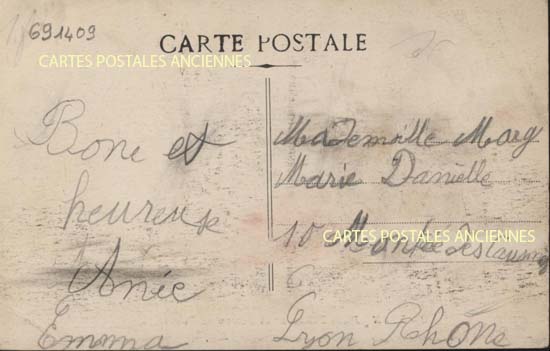 691409
CARTE POSTALE
CARTES POSTALES ANCIENNES
Bone et
heureux
Anée
Emma
Mademoille Marg
Marie Danielle
10 Montée des
CARTES POSTALES ANCIENNES
Lyon Rhône